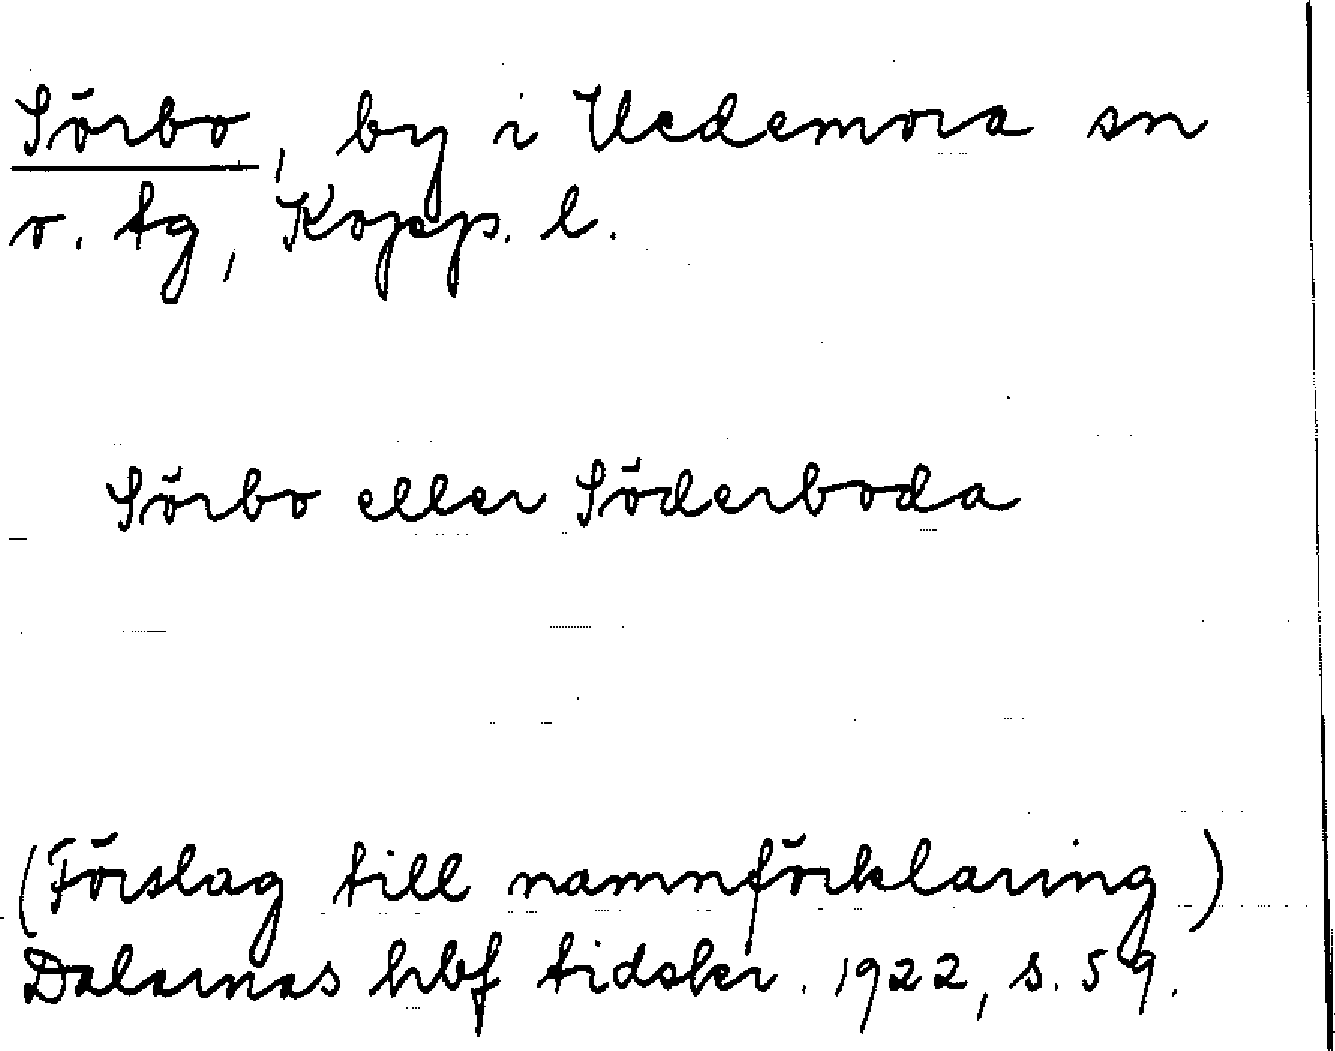 Sörbo, by i Vedemora sn
o. tg, Kopp. l.
Sörbo eller Söderboda
(Förslag till namnförklaring)
Dalarnas hbf tidskr. 1922, s. 59.